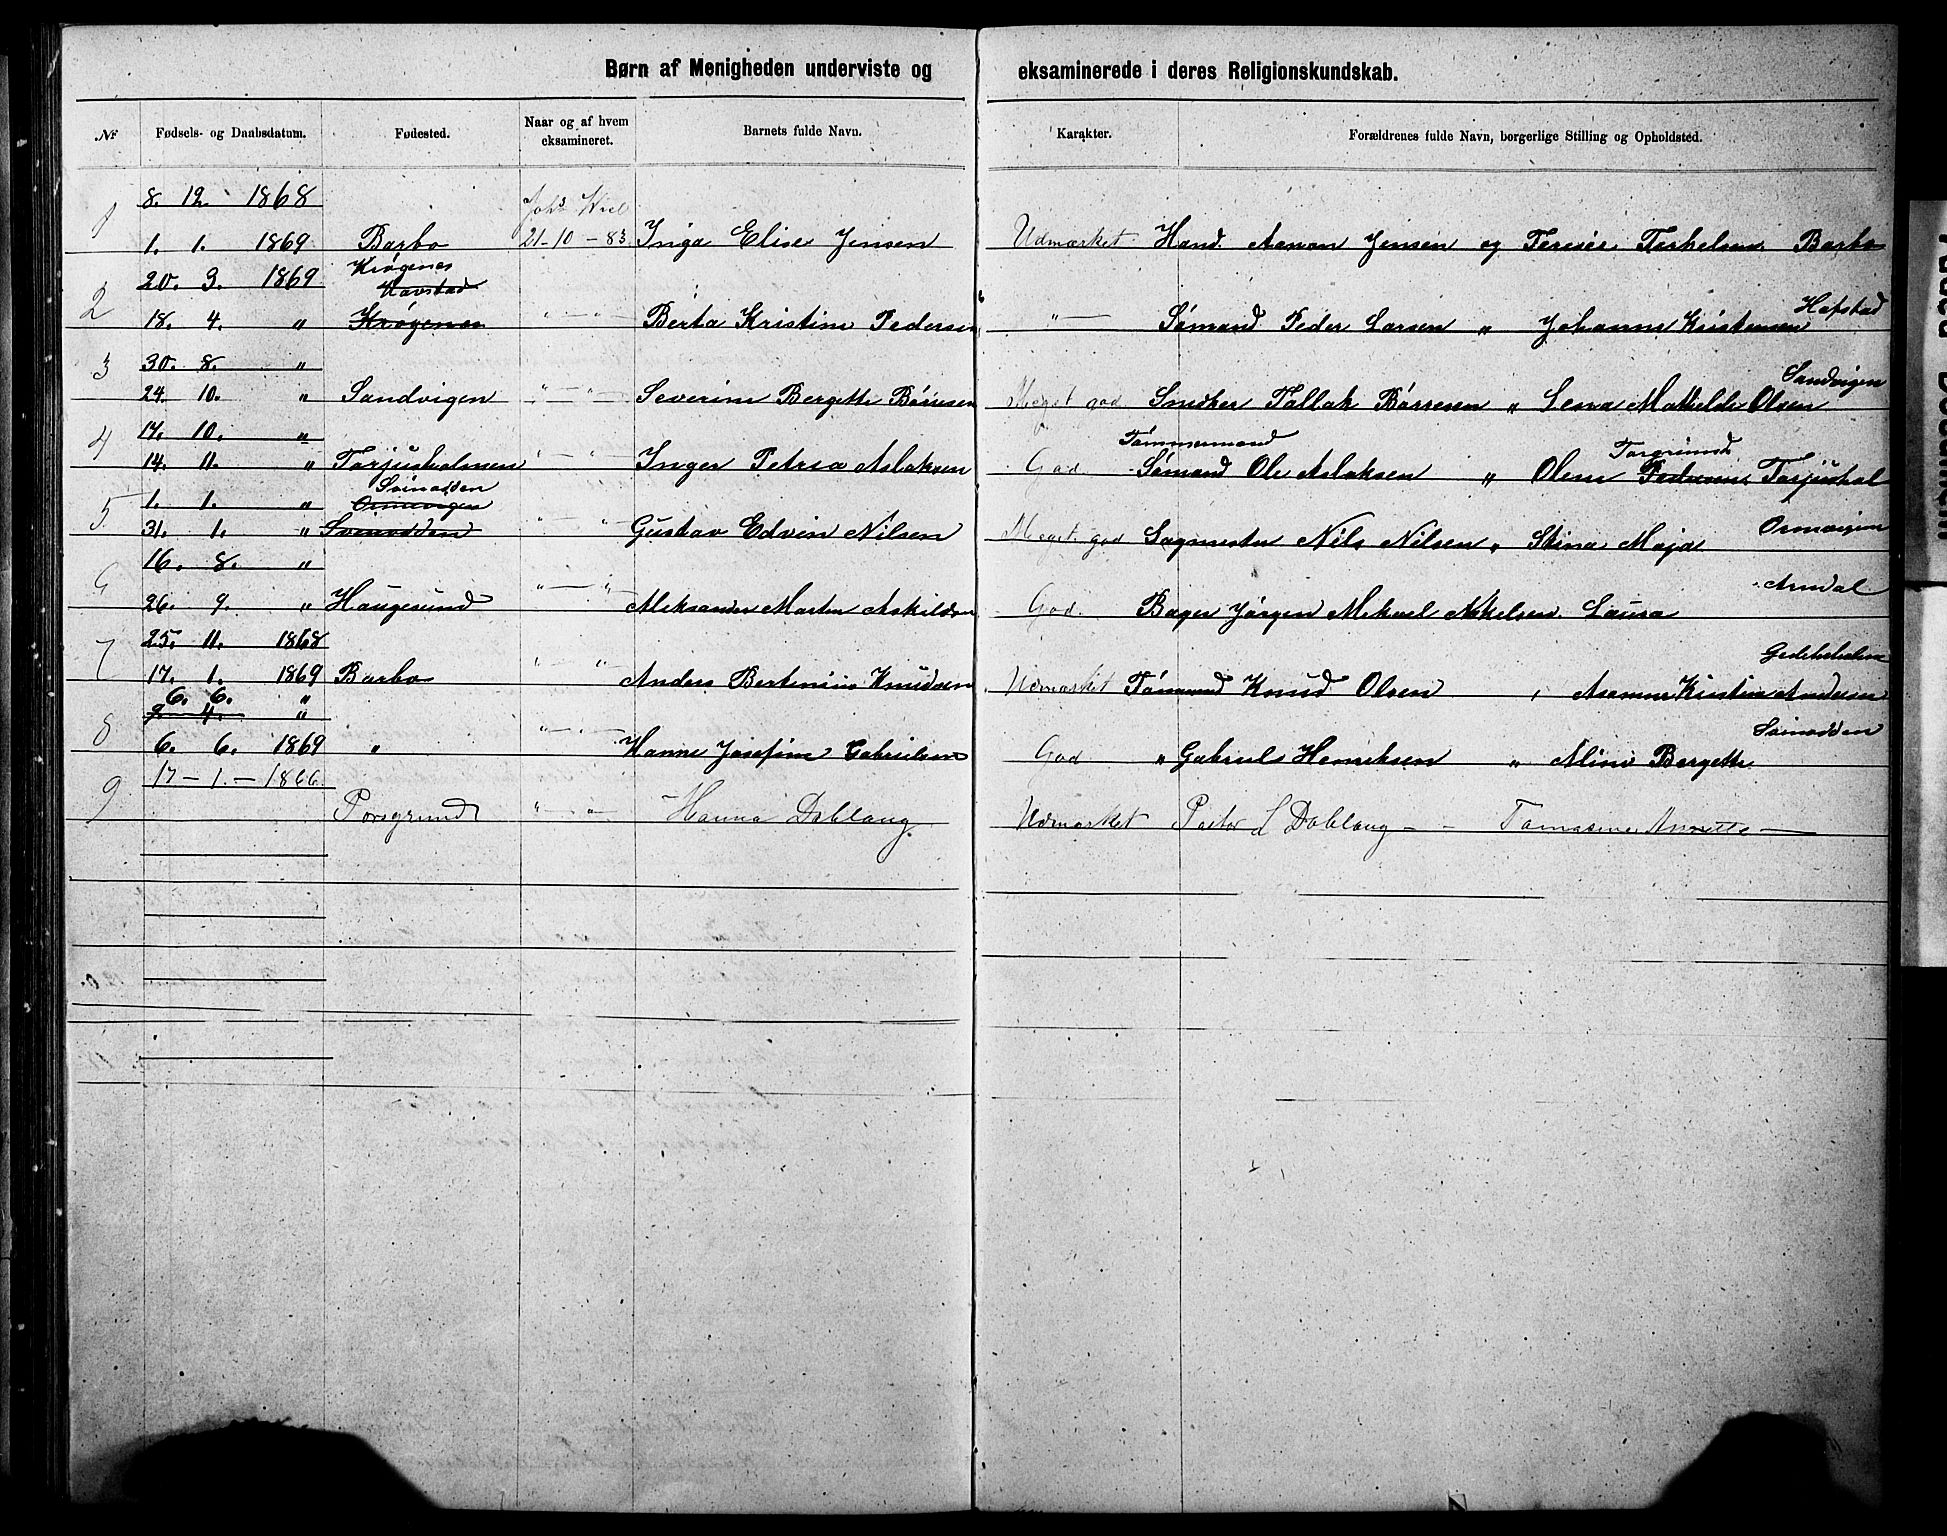 Børn af Menigheden underviste og eksaminerede i deres Religionskundskab.
Nr Fødsels- og Daabsdatum. Fødested. Naar og af hvem eksamineret. Barnets fulde Navn. Karakter. Forældrenes fulde Navn, borgerlige Stilling og Opholdsted.
8. 12. 1868 Johs
1 1. 1. 1869 Barbo 21-10-83. Inga Elise Jensen Udmærket Hand. Aanon Jensen og Terkelsen Barbo
20. 3. 1869 Krøgenes
Havstad
2 18. 4. " Krøgenes " — " Berta Kristine Pedersen " — Sømand Peder Larsen " Johanne Kristensen Hafstad
30. 8. "
3 24. 10. " Sandvigen " — " Severine Bergette Børresen Meget god Snedker Tallak Børresen " Lena Mathilde Olsen Sandvigen
17. 10. " Tømmermand Torgrimsd
4 14. 11. " Torjusholmen " — " Inger Petrea Aslaksen God Sømand Ole Aslaksen " Olene Pedersen Torjushol
1. 1. " Svinodden
Ormevigen
5 31. 1. " Svinodden " — " Gustav Edvin Nilsen Meget god Sagmester Nils Nilsen " Stina Maja Ormevigen
16. 8. "
6 26. 9. " Haugesund " — " Aleksander Martin Askildsen God. Bager Jørgen Mikael Laura Arndal
25. 11. 1868
7 17. 1. 1869 Barbo " — " Anders Bertinius Knudsen Udmærket Tømmermand Knud Olsen " Asenne Kristine Andersen
6. 6. "
9. 4. "
8 6. 6. 1869 " " — " Hanne Josefine Gabrielsen God " Gabriels Henriksen " Aline Bergette Svinodden
17 - 1. - 1866
9 Porsgrund " — " Hanna Dablaug Udmærket Pastor S Dablaug — — Tomasine Annette —